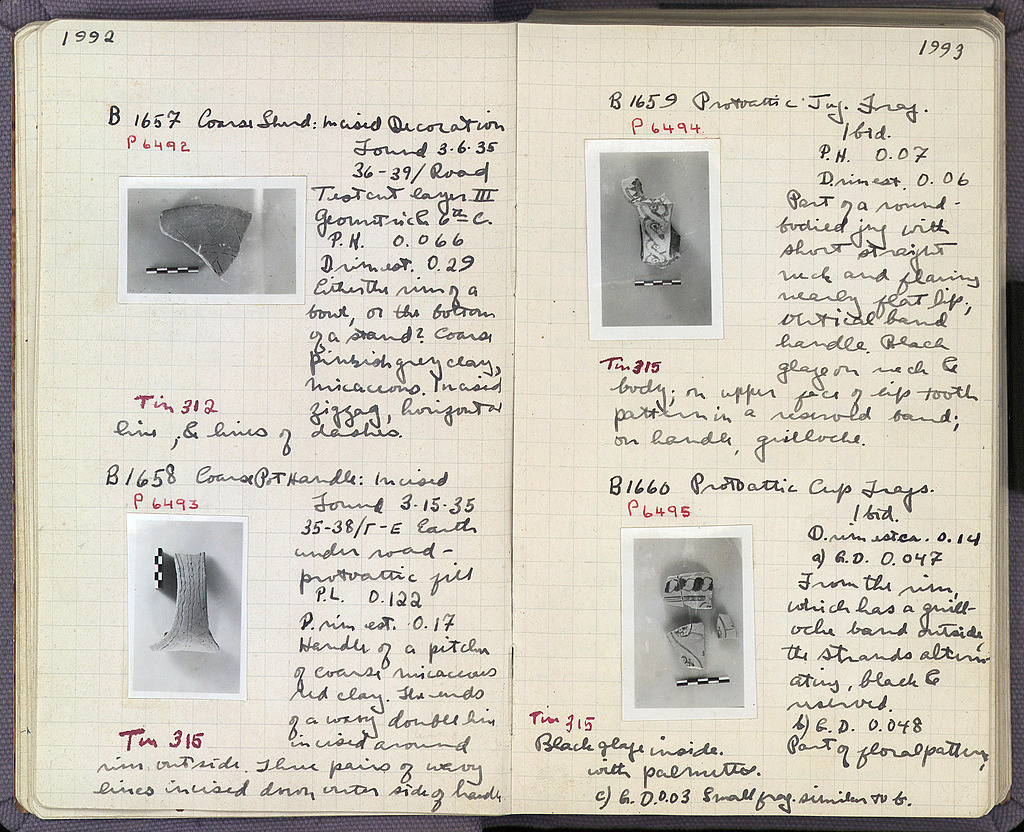 1992
B 1657 Coarse Sherd: Incised Decoration
P 6492
Found 3·6·35
36-39/ Road
Test cut layer III
Geometric & 6th C.
P.H. 0.066
D. rim est. 0.29
Either the rim of a
bowl, or the bottom
of a stand? Coarse
pinkish grey clay,
micaceous. Incised
Tin 312
zigzag, horizontal
line, & lines of dashes.
B 1658 Coarse Pot Handle: Incised
P 6493
Found 3·15·35
35-38/Γ-E Earth
under road -
protoattic fill
P.L. 0.122
D. rim est. 0.17
Handle of a pitcher
of coarse micaceous
red clay. The ends
of a wavy double line
Tin 315
incised around
rim outside. Three pairs of wavy
lines incised down outer side of handle
1993
B 1659 Protoattic Jug. Frag.
P 6494
Ibid.
P.H. 0.07
D. rim est. 0.06
Part of a round-
bodied jug with
short straight
neck and flaring
nearly flat lip;
vertical band
handle. Black
Tin 315
glaze on neck &
body; on upper face of lip tooth
pattern in a reserved band;
on handle, guilloche.
B 1660 Protoattic Cup Frags.
P 6495
Ibid.
D. rim est ca. 0.14
a) G.D. 0.047
From the rim,
which has a guill-
oche band outside,
the strands altern-
ating, black &
reserved.
b) G.D. 0.048
Tin 315
Part of floral pattern,
Black glaze inside.
with palmettes.
c) G.D. 0.03 Small frag. similar to b.